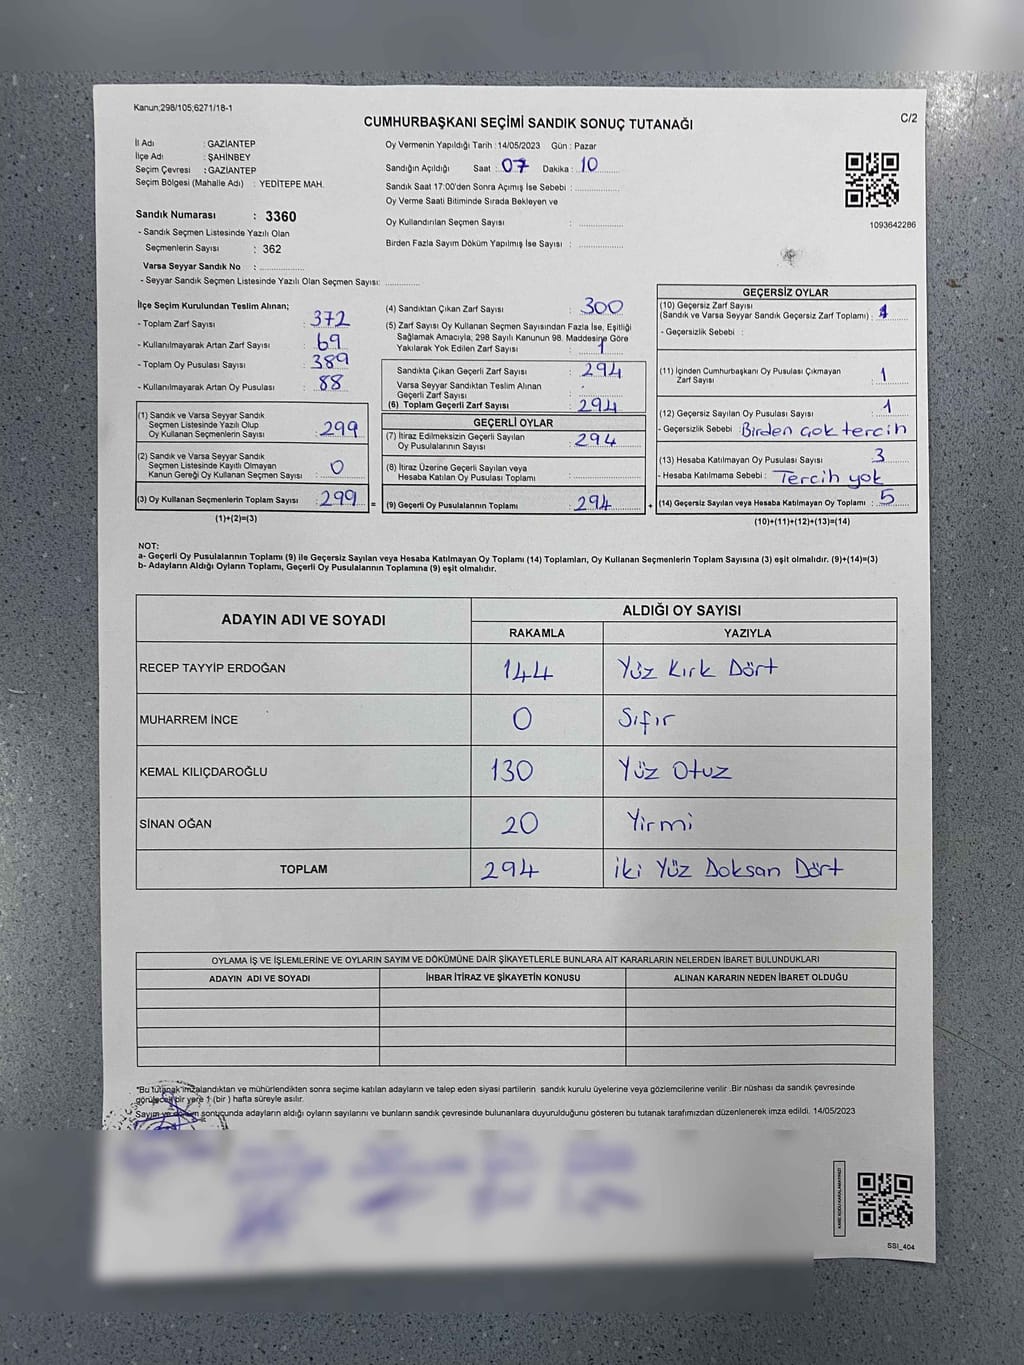 Kanun;298/105;6271/18-1
C/2
CUMHURBAŞKANI SEÇİMİ SANDIK SONUÇ TUTANAĞI
İl Adı : GAZİANTEP
İlçe Adı : ŞAHİNBEY
Seçim Çevresi : GAZİANTEP
Seçim Bölgesi (Mahalle Adı) : YEDİTEPE MAH.
Sandık Numarası : 3360
- Sandık Seçmen Listesinde Yazılı Olan
Seçmenlerin Sayısı : 362
Varsa Seyyar Sandık No : ............
- Seyyar Sandık Seçmen Listesinde Yazılı Olan Seçmen Sayısı: ............
Oy Vermenin Yapıldığı Tarih : 14/05/2023 Gün : Pazar
Sandığın Açıldığı Saat : 07 Dakika : 10
Sandık Saat 17:00'den Sonra Açımış İse Sebebi : ............
Oy Verme Saati Bitiminde Sırada Bekleyen ve
Oy Kullandırılan Seçmen Sayısı : ............
Birden Fazla Sayım Döküm Yapılmış İse Sayısı : ............
1093642286
İlçe Seçim Kurulundan Teslim Alınan;
- Toplam Zarf Sayısı : 372
- Kullanılmayarak Artan Zarf Sayısı : 69
- Toplam Oy Pusulası Sayısı : 389
- Kullanılmayarak Artan Oy Pusulası : 88
(1) Sandık ve Varsa Seyyar Sandık
Seçmen Listesinde Yazılı Olup
Oy Kullanan Seçmenlerin Sayısı : 299
(2) Sandık ve Varsa Seyyar Sandık
Seçmen Listesinde Kayıtlı Olmayan
Kanun Gereği Oy Kullanan Seçmen Sayısı : 0
(3) Oy Kullanan Seçmenlerin Toplam Sayısı : 299 =
(1)+(2)=(3)
(4) Sandıktan Çıkan Zarf Sayısı : 300
(5) Zarf Sayısı Oy Kullanan Seçmen Sayısından Fazla İse, Eşitliği
Sağlamak Amacıyla; 298 Sayılı Kanunun 98. Maddesine Göre
Yakılarak Yok Edilen Zarf Sayısı : 1
Sandıkta Çıkan Geçerli Zarf Sayısı : 294
Varsa Seyyar Sandıktan Teslim Alınan
Geçerli Zarf Sayısı :
(6) Toplam Geçerli Zarf Sayısı : 294
GEÇERLİ OYLAR
(7) İtiraz Edilmeksizin Geçerli Sayılan
Oy Pusulalarının Sayısı : 294
(8) İtiraz Üzerine Geçerli Sayılan veya
Hesaba Katılan Oy Pusulası Toplamı : ............
(9) Geçerli Oy Pusulalarının Toplamı : 294 +
GEÇERSİZ OYLAR
(10) Geçersiz Zarf Sayısı
(Sandık ve Varsa Seyyar Sandık Geçersiz Zarf Toplamı) :
- Geçersizlik Sebebi :
(11) İçinden Cumhurbaşkanı Oy Pusulası Çıkmayan
Zarf Sayısı : 1
(12) Geçersiz Sayılan Oy Pusulası Sayısı : 1
- Geçersizlik Sebebi : Birden çok tercih
(13) Hesaba Katılmayan Oy Pusulası Sayısı : 3
- Hesaba Katılmama Sebebi : Tercih yok
(14) Geçersiz Sayılan veya Hesaba Katılmayan Oy Toplamı : 5
(10)+(11)+(12)+(13)=(14)
NOT:
a- Geçerli Oy Pusulalarının Toplamı (9) ile Geçersiz Sayılan veya Hesaba Katılmayan Oy Toplamı (14) Toplamları, Oy Kullanan Seçmenlerin Toplam Sayısına (3) eşit olmalıdır. (9)+(14)=(3)
b- Adayların Aldığı Oyların Toplamı, Geçerli Oy Pusulalarının Toplamına (9) eşit olmalıdır.
ADAYIN ADI VE SOYADI
ALDIĞI OY SAYISI
RAKAMLA YAZIYLA
RECEP TAYYİP ERDOĞAN 144 Yüz Kırk Dört
MUHARREM İNCE 0 Sıfır
KEMAL KILIÇDAROĞLU 130 Yüz Otuz
SİNAN OĞAN 20 Yirmi
TOPLAM 294 İki Yüz Doksan Dört
OYLAMA İŞ VE İŞLEMLERİNE VE OYLARIN SAYIM VE DÖKÜMÜNE DAİR ŞİKAYETLERLE BUNLARA AİT KARARLARIN NELERDEN İBARET BULUNDUKLARI
ADAYIN ADI VE SOYADI İHBAR İTİRAZ VE ŞİKAYETİN KONUSU ALINAN KARARIN NEDEN İBARET OLDUĞU
*Bu tutanak imzalandıktan ve mühürlendikten sonra seçime katılan adayların ve talep eden siyasi partilerin sandık kurulu üyelerine veya gözlemcilerine verilir .Bir nüshası da sandık çevresinde
görülecek bir yere 1 (bir ) hafta süreyle asılır.
Sayım ve döküm sonucunda adayların aldığı oyların sayılarını ve bunların sandık çevresinde bulunanlara duyurulduğunu gösteren bu tutanak tarafımızdan düzenlenerek imza edildi. 14/05/2023
KARE KODU KARALAMAYINIZ!
SSI_404